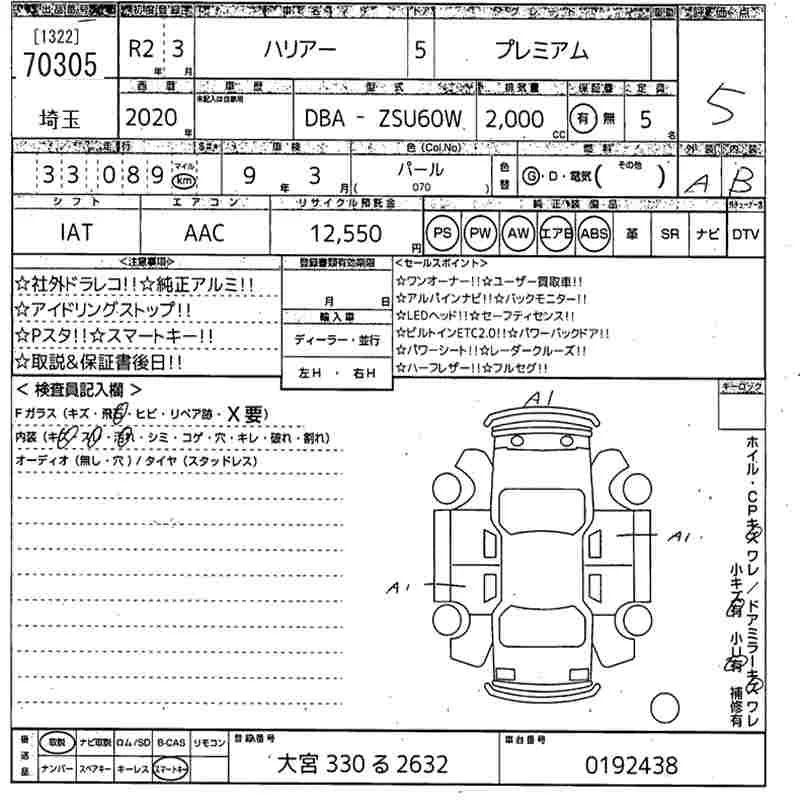 出品番号 初度登録 車名 ドア グレード 車歴 評価点
[1322]
70305
R2年 3月 ハリアー 5 プレミアム 5
埼玉
西暦 車歴 型式 排気量 保証書 定員
未記入は自家用
2020年 DBA - ZSU60W 2,000cc 有 無 5名
走行 車検 色(Col,No) 燃料 外装 内装
33089 マイル km 9年 3月 パール (070) 色替 G・D・電気(その他) A B
シフト エアコン リサイクル預託金 純正装備品
IAT AAC 12,550円 PS PW AW エアB ABS 革 SR ナビ DTV
<注意事項>
☆社外ドラレコ!!☆純正アルミ!!
☆アイドリングストップ!!
☆Pスタ!!☆スマートキー!!
☆取説&保証書後日!!
登録書類有効期限
月 日
輸入車
ディーラー・並行
左H ・ 右H
<セールスポイント>
☆ワンオーナー!!☆ユーザー買取車!!
☆アルパインナビ!!☆バックモニター!!
☆LEDヘッド!!☆セーフティセンス!!
☆ビルトインETC2.0!!☆パワーバックドア!!
☆パワーシート!!☆レーダークルーズ!!
☆ハーフレザー!!☆フルセグ!!
< 検査員記入欄 >
Fガラス(キズ・飛石・ヒビ・リペア跡・X要)
内装(キズ・スレ・汚れ・シミ・コゲ・穴・キレ・破れ・割れ)
オーディオ(無し・穴)/タイヤ(スタッドレス)
キーロック
A1
A1
A1
ホイル・CPキズ ワレ/ドアミラーキズ ワレ
小キズ有 小U有 補修有
後送品 取説 ナビ取説 ロム/SD B-CAS リモコン
ナンバー スペアキー キーレス スマートキー
登録番号
大宮 330 る 2632
車台番号
0192438